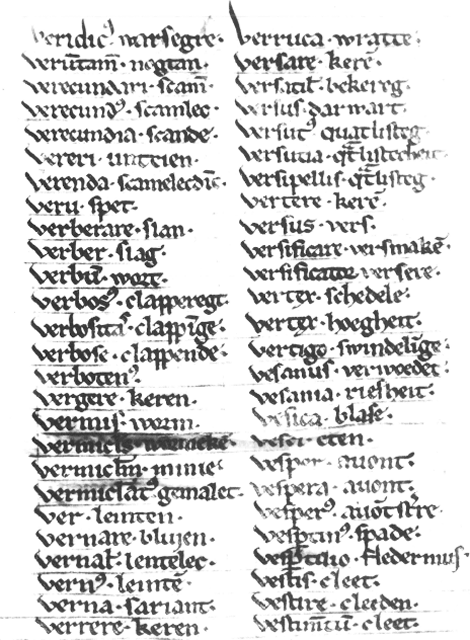 veridic⁹ · warsegre ·
verūtam̄ · nogtan ·
verecundari · scam̄ ·
verecund⁹ · scamlec ·
verecundia · scande ·
vereri ·
verenda ·
veru · spet ·
verberare · slan ·
verber · slag ·
verbū · wort ·
verbos⁹ · clapperegt ·
verbosita⁹ · clappīge ·
verbose · clappende ·
verboten⁹ ·
vergere · keren ·
vermis · worm ·
vermiclm̄ · minie
vermiclat⁹ · gemalet ·
ver · leinten ·
vernare · bluien ·
vernal̄ · lentelec ·
vern⁹ · leintē
verna · sariant ·
verrere · keren ·
verruca · wratte ·
versare · kerē ·
versatil̄ · bekereg ·
versus · darwart ·
versut⁹ · quatlisteg
versutia ·
versipellis · qt̄listeg ·
vertere · kerē ·
versus · vers ·
versificare · versmakē ·
versificator · versere ·
vertex · schedele ·
vertex · hoegheit ·
vertigo · swindelīge ·
vesanus · verwoedet
vesania · riesheit ·
vesica · blase ·
vesci · eten ·
vesper · auont ·
vespera · auont ·
vesper⁹ · auōtstrē ·
vesptin⁹ · spade ·
vesptilio · fledermus ·
vestis · cleet ·
vestire · cleeden ·
vestimtū · cleet ·